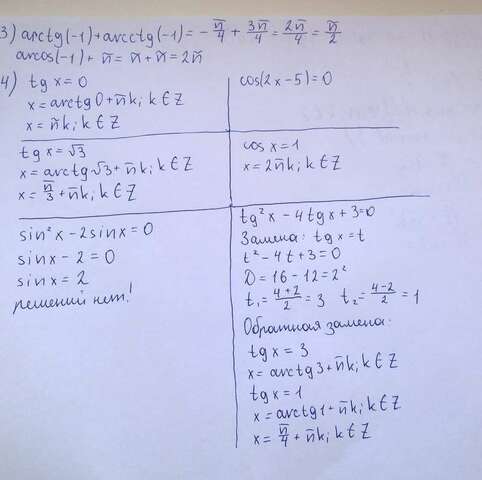 3) arctg(-1)+arcctg(-1)= -π/4 + 3π/4 = 2π/4 = π/2
arcos(-1)+ π = π + π = 2π
4) tg x = 0
x = arctg0+πk; k∈Z
x = πk; k∈Z
cos(2x-5)=0
tg x = √3
x = arctg√3+πk; k∈Z
x = π/3 + πk; k∈Z
cos x = 1
x = 2πk; k∈Z
sin²x - 2sinx = 0
sinx - 2 = 0
sinx = 2
решений нет!
tg²x - 4tgx + 3=0
Замена: tgx=t
t² - 4t+3=0
D = 16-12=2²
t₁= 4+2/2 = 3 t₂= 4-2/2 = 1
Обратная замена:
tgx = 3
x = arctg3+πk; k∈Z
tgx = 1
x = arctg1+πk; k∈Z
x = π/4 + πk; k∈Z